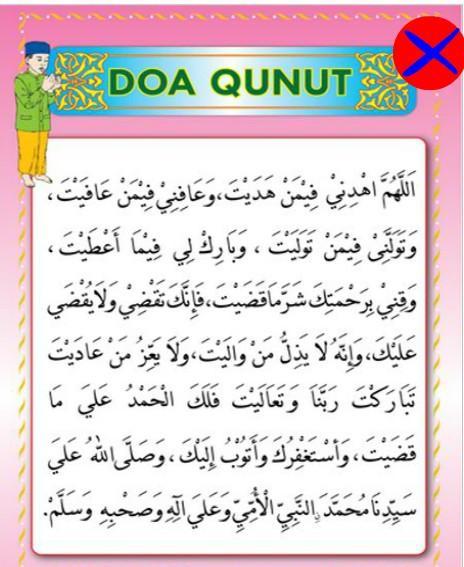 DOA QUNUT
اَللَّهُمَّ اهْدِنِيْ فِيْمَنْ هَدَيْتَ،وَعَافِنِيْ فِيْمَنْ عَافَيْتَ،
وَتَوَلَّنِيْ فِيْمَنْ تَوَلَيْتَ ، وَبَارِكْ لِي فِيْمَا أَعْطَيْتَ ،
وَقِنِيْ بِرَحْمَتِكَ شَرَّمَاقَضَيْتَ،فَإِنَّكَ تَقْضِيْ وَلَايُقْضَي
عَلَيْكَ،وَإِنَّهُ لَا يَذِلُّ مَنْ وَالَيْتَ،وَلَا يَعِّزُ مَنْ عَادَيْتَ
تَبَارَكْتَ رَبَّنَا وَتَعَالَيْتَ فَلَكَ الْحَمْدُ عَلَي مَا
قَضَيْتَ، وَأَسْتَغْفِرُكَ وَأَتُوْبُ إِلَيْكَ ، وَصَلَّى اللهُ عَلَي
سَيِّدِنَامُحَمَّدٍ النَّبِيِّ الْأُمِّيِّ وَعَلَي آلِهِ وَصَحْبِهِ وَسَلَّمْ.